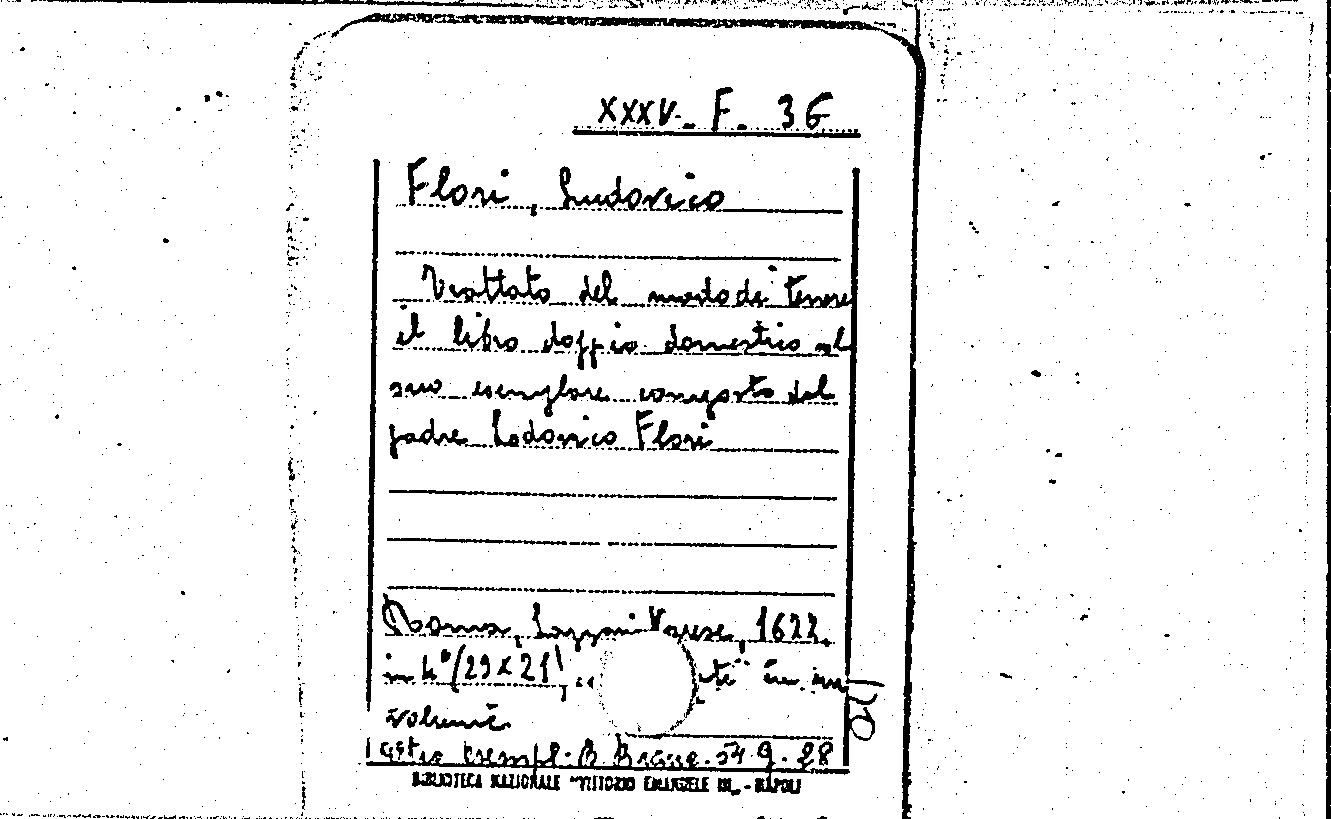 XXXV. F. 36
Flori, Ludovico
Trattato del modo di tenere
il libro doppio domestico col
suo esemplare composto dal
padre Lodovico Flori
Roma, Lazzari Varese, 1677.
in 4° (29x21), in un
volume
altro esempl. B. Branc. 54. 9. 28
BIBLIOTECA NAZIONALE "VITTORIO EMANUELE III" - NAPOLI